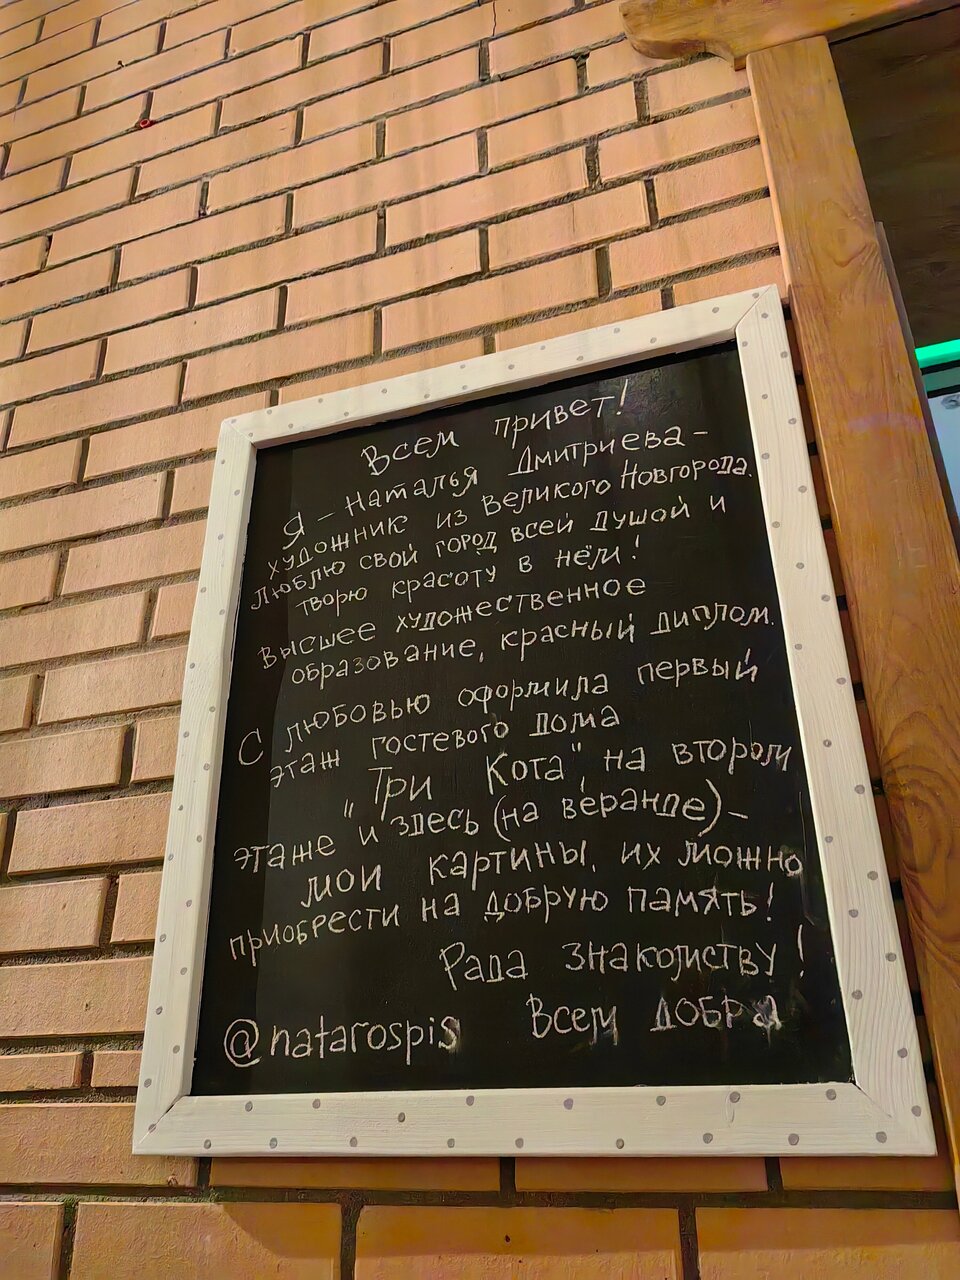 Всем привет!
Я – Наталья Дмитриева –
художник из Великого Новгорода.
Люблю свой город всей душой и
творю красоту в нём!
Высшее художественное
образование, красный диплом.
С любовью оформила первый
этаж гостевого дома
„Три Кота", на втором
этаже и здесь (на веранде) –
мои картины, их можно
приобрести на добрую память!
Рада знакомству!
Всем добра
@natarospis